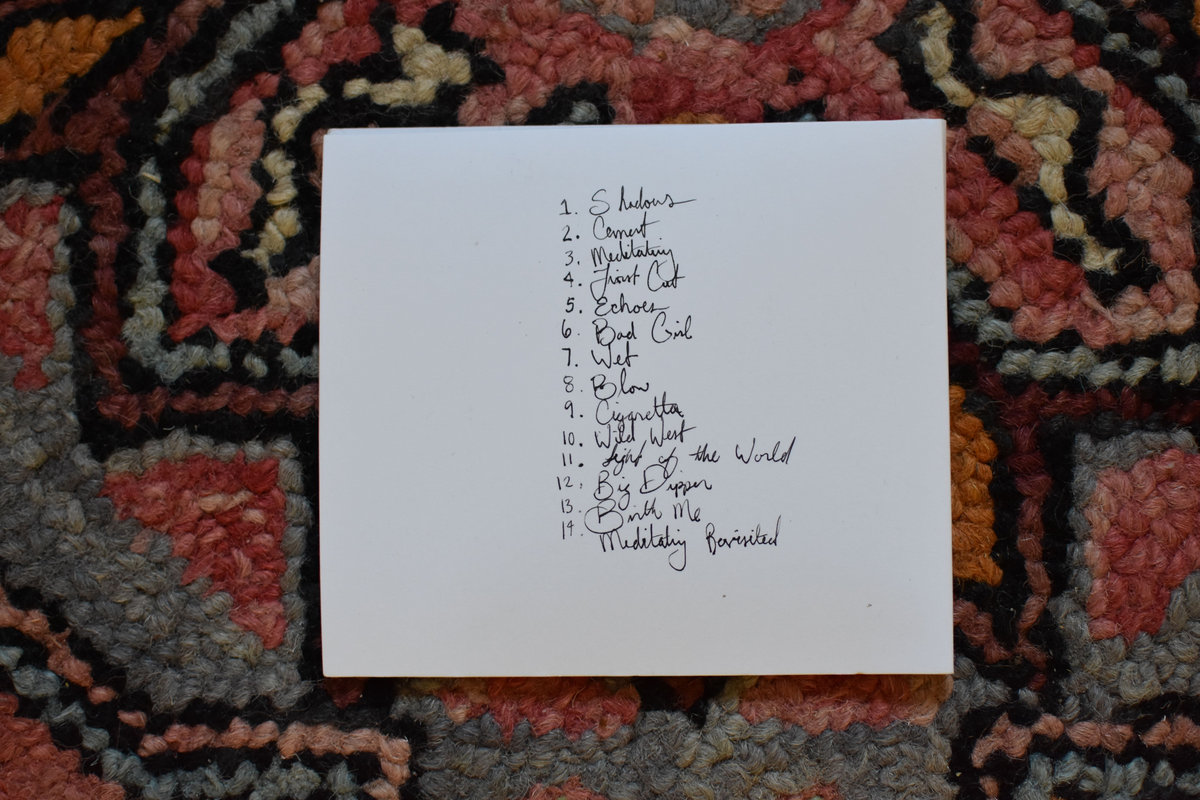 1. Shadows
2. Cement
3. Meditating
4. Front Cut
5. Echoes
6. Bad Girl
7. Wet
8. Blow
9. Cigarette
10. Wild West
11. of the World
12. Big Dipper
13. Birth Me
14. Meditating Revisited